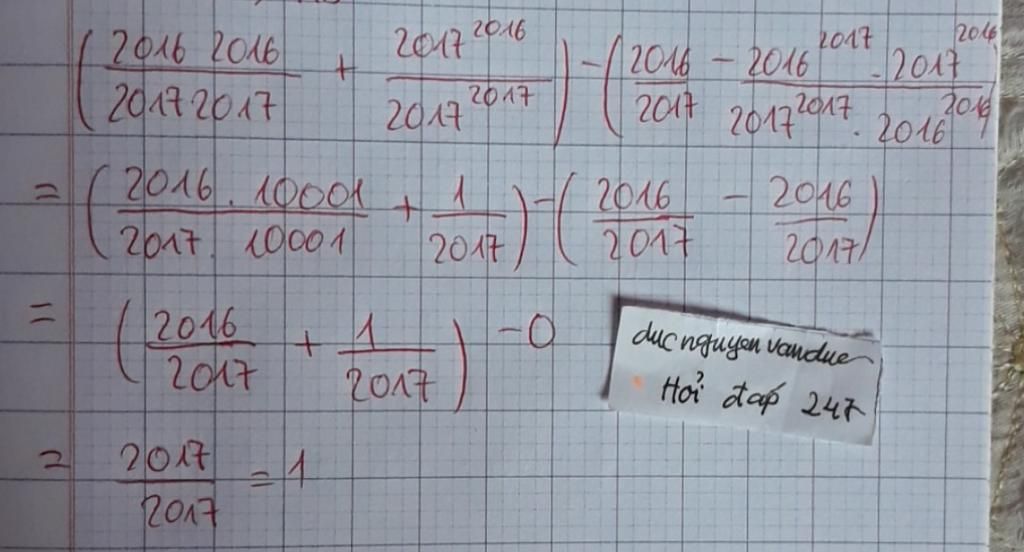 (20162016/20172017 + 2017^2016/2017^2017) - (2016/2017 - 2016^2017 . 2017^2016/2017^2017 . 2016^2016)
= (2016 . 10001/2017 . 10001 + 1/2017) - (2016/2017 - 2016/2017)
= (2016/2017 + 1/2017) - 0
= 2017/2017 = 1
ducnguyenvanduc
Hỏi đáp 247